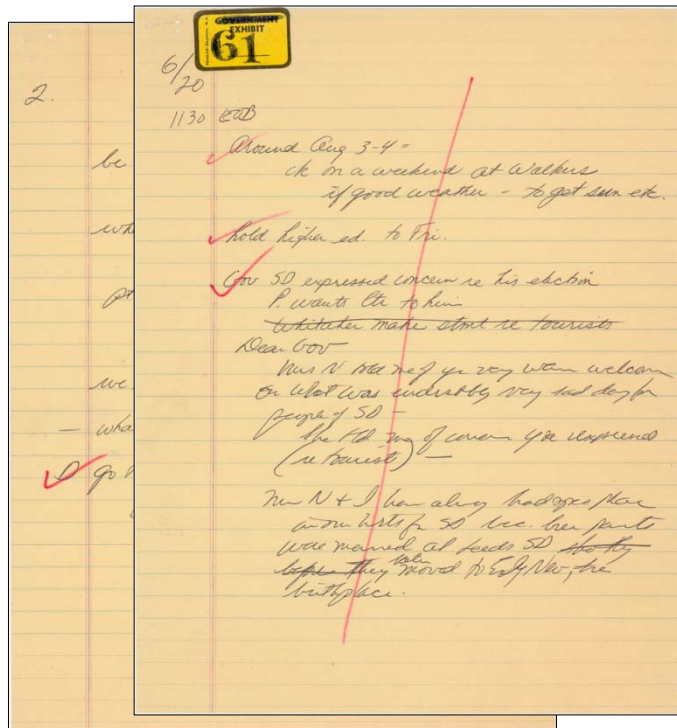 2.
be
we
wha
go
GOVERNMENT
EXHIBIT
61
6/20
1130 EOB
Around Aug 3-4 =
ck on a weekend at Walkers
if good weather - to get sun etc.
hold higher ed. to Fri.
Gov SD expressed concern re his election
P. wants ltr to him
Whitaker make stmt re tourists
Dear Gov
Mrs N told me of yr very warm welcome
on what was undoubtedly very sad day for
people of SD -
She told me of concern you expressed
(re tourist) -
Mrs N & I have always had spec place
in our hearts for SD bec. her parents
were married at Leeds SD
before they later moved to Ely Nev, her
birthplace.